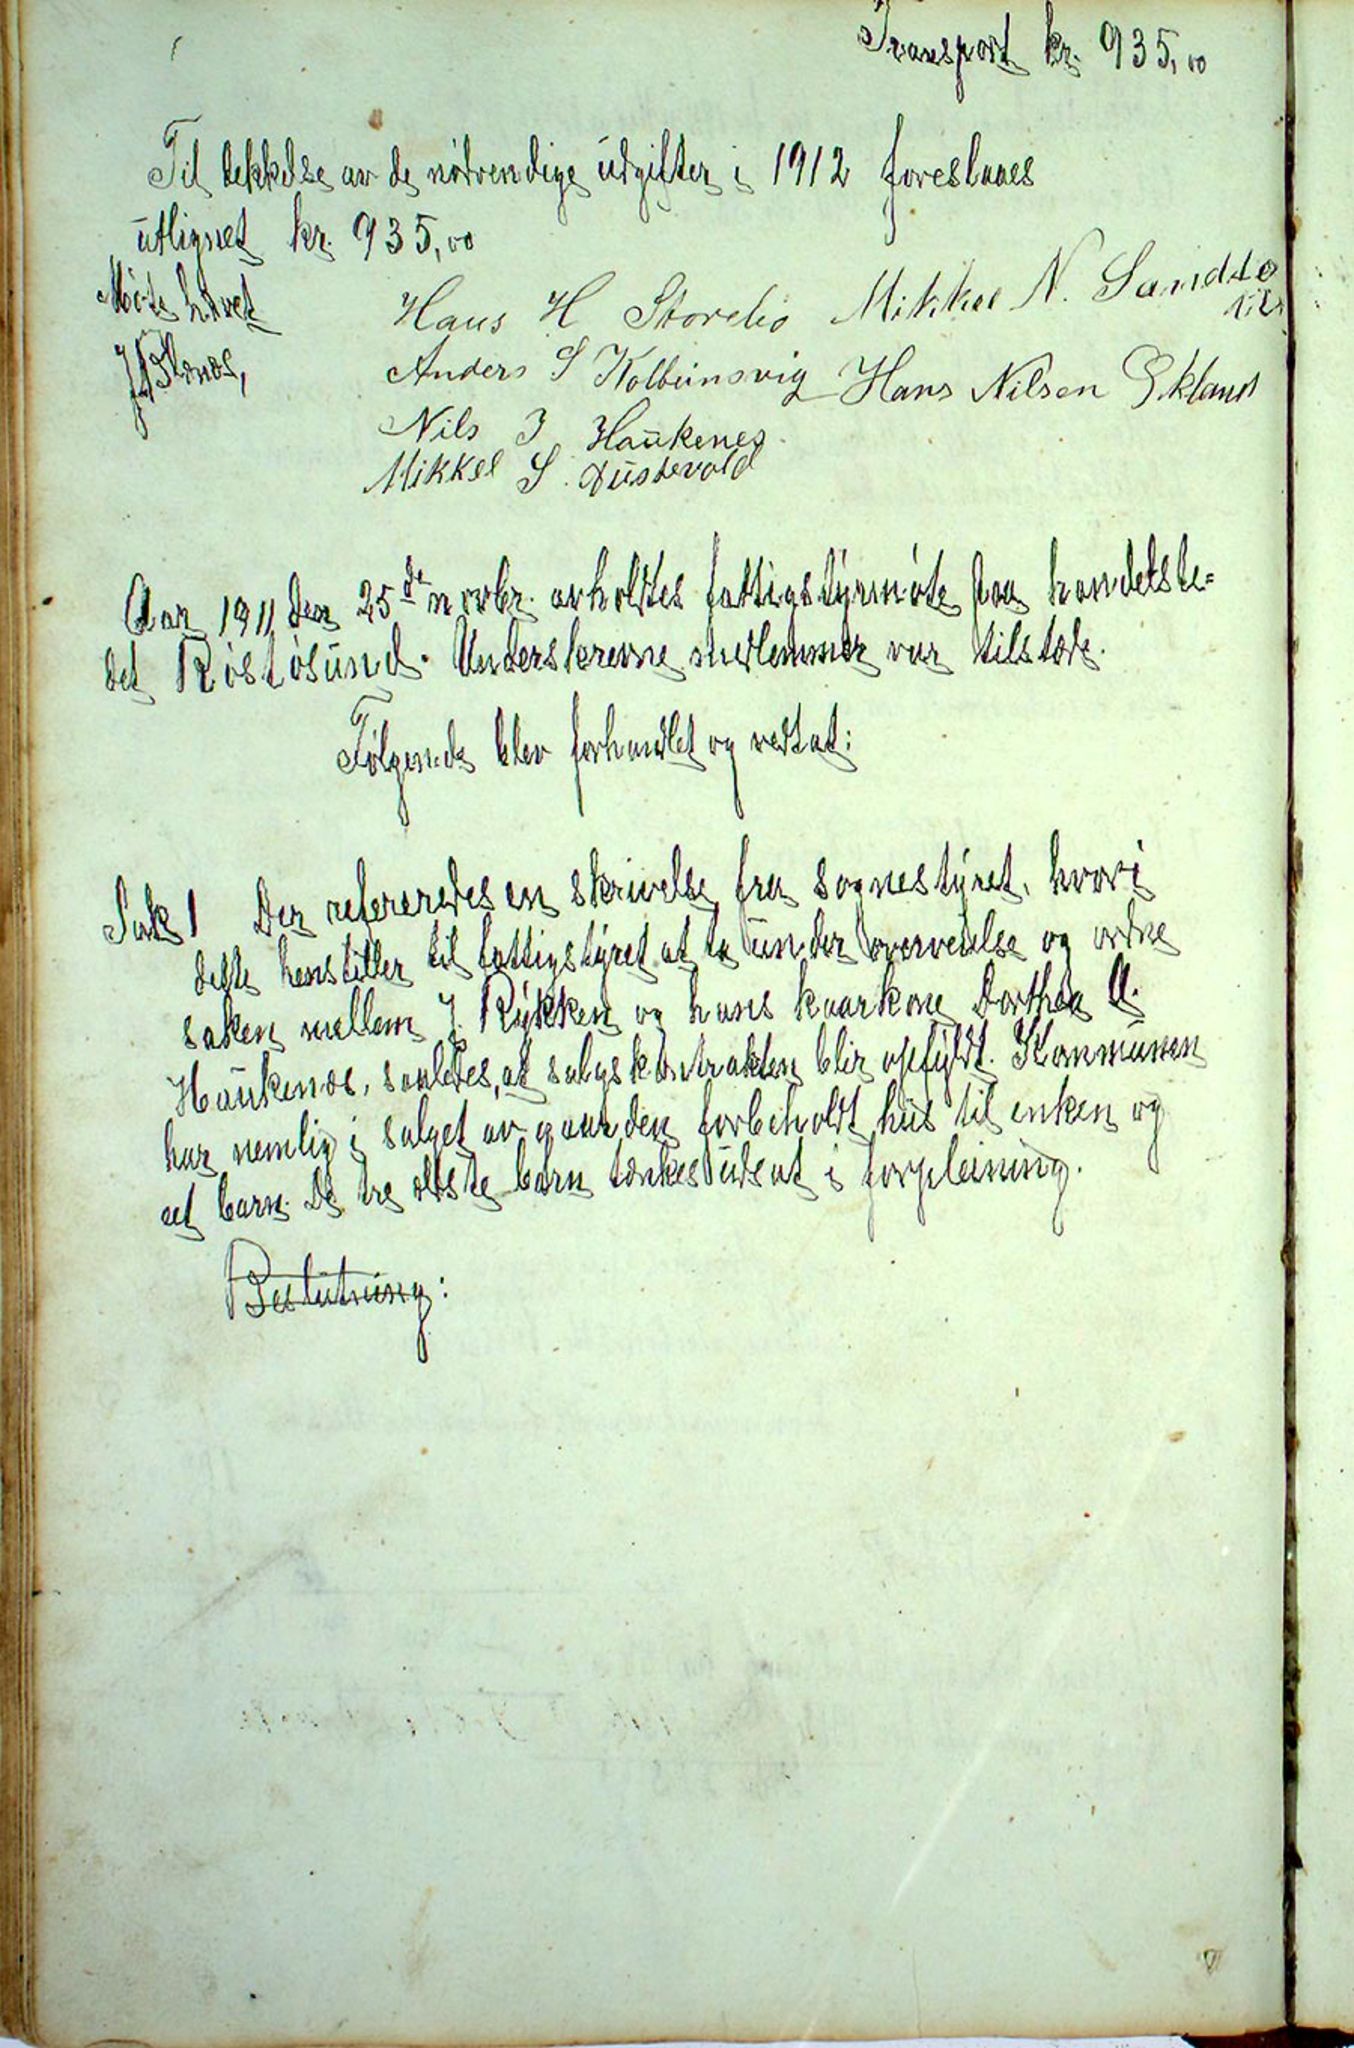 Transport kr. 935,00
Til dekkelse av de nødvendige udgifter i 1912 foreslaaes
utlignet kr. 935,00
Møte hævet
Hans H Storebø Mikkel N. Sandtø
Nils
Anders S Kolbeinsvig Hans Nilsen Eklund
Nils J Haukenes.
Mikkel S. Austevold
Aar 1911 den 25de novbr. avholdtes fattigstyrmøte paa handelste-
det Røstøsund. Underskrevne medlemmer var tilstæde.
Følgende blev forhandlet og vedtat:
Sak 1 Der refereredes en skrivelse fra sognestyret, hvori
dette henstiller til fattigstyret at ta under overveielse og ordne
saken mellem J. Rykken og hans kaarkone Dorthea A.
Haukenæs, saaledes, at salgskontrakten blir opfyldt. Kommunen
har nemlig i salget av gaarden forbeholdt hus til enken og
et barn. De tre ældste børn tænkes udsat i forpleining.
Beslutning: